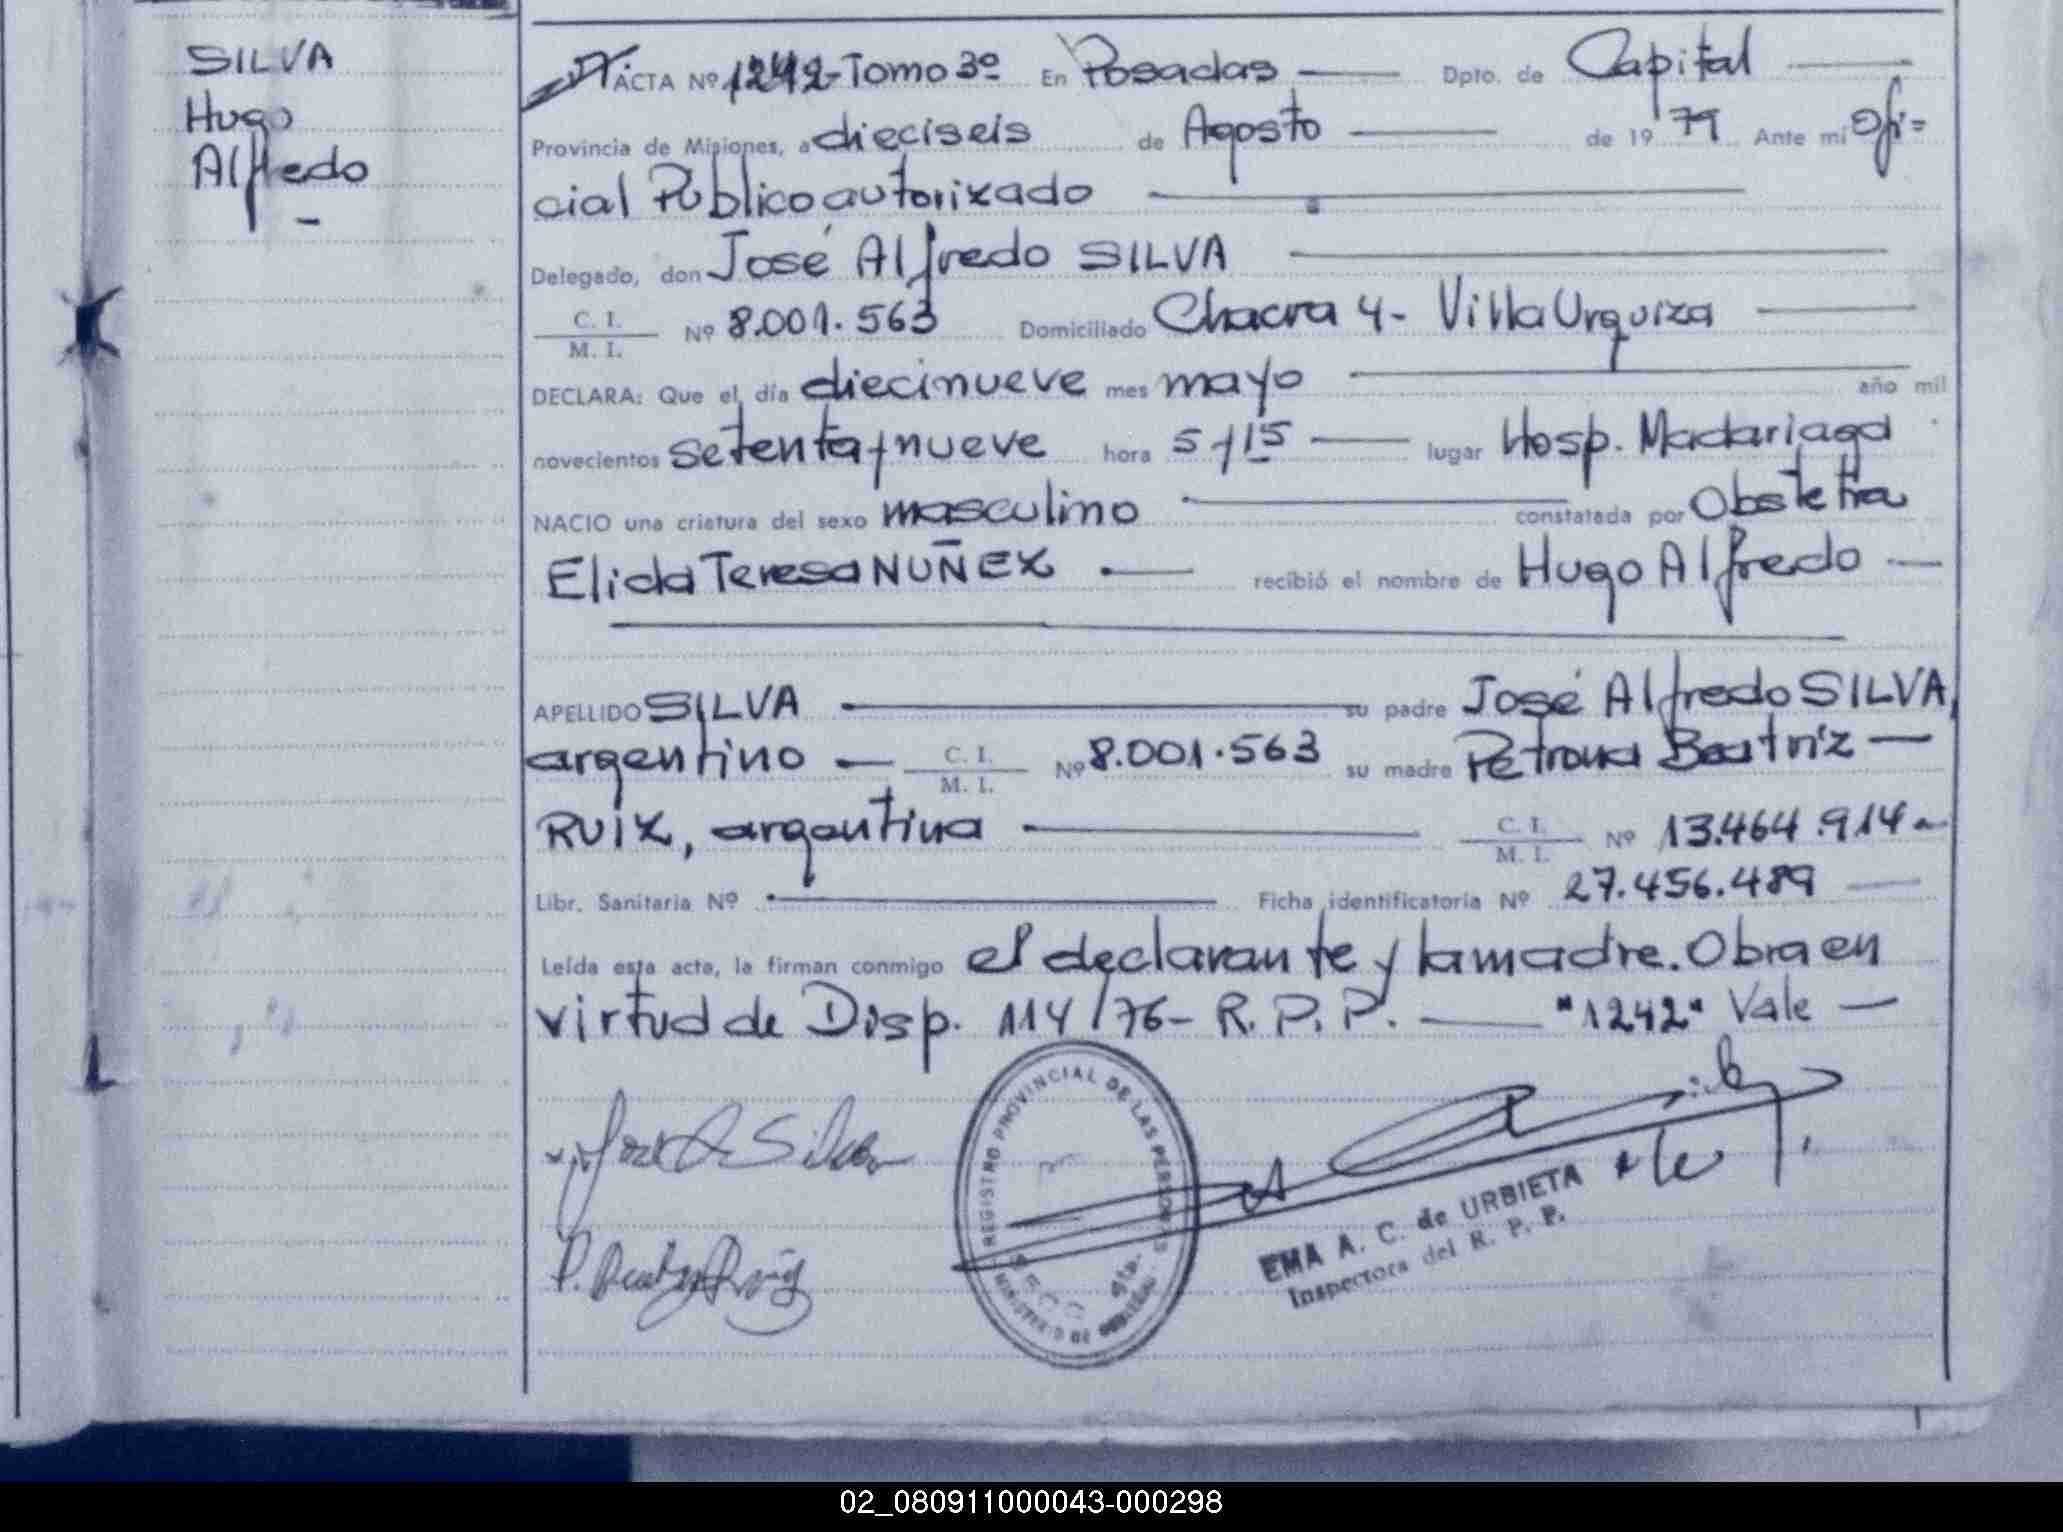 SILVA
Hugo
Alfredo
-
ACTA Nº 1242- Tomo 3º En Posadas — Dpto. de Capital —
Provincia de Misiones, a dieciseis de Agosto — de 19 79 Ante mi Ofi=
cial Público autorizado —
Delegado, don José Alfredo SILVA —
C. I.
M. I. Nº 8.001.563 Domiciliado Chacra 4- Villa Urquiza —
DECLARA: Que el día diecinueve mes mayo — año mil
novecientos setenta y nueve hora 5 y 15 — lugar Hosp. Madariaga
NACIO una criatura del sexo masculino — constatada por Obstetra
Elida Teresa NUÑEZ — recibió el nombre de Hugo Alfredo —
APELLIDO SILVA — su padre José Alfredo SILVA,
argentino — C. I. M. I. Nº 8.001.563 su madre Petrona Beatriz —
RUIZ, argentina — C. I. M. I. Nº 13.464.914-
Libr. Sanitaria Nº — Ficha identificatoria Nº 27.456.489 —
Leída esta acta, la firman conmigo el declarante y la madre. Obra en
virtud de Disp. 114/76- R. P. P. — "1242" Vale —
José A Silva
REGISTRO PROVINCIAL DE LAS PERSONAS
MINISTERIO DE GOBIERNO
EMA A. C. de URBIETA
Inspectora del R. P. P.
P. Beatriz Ruiz
02_080911000043-000298